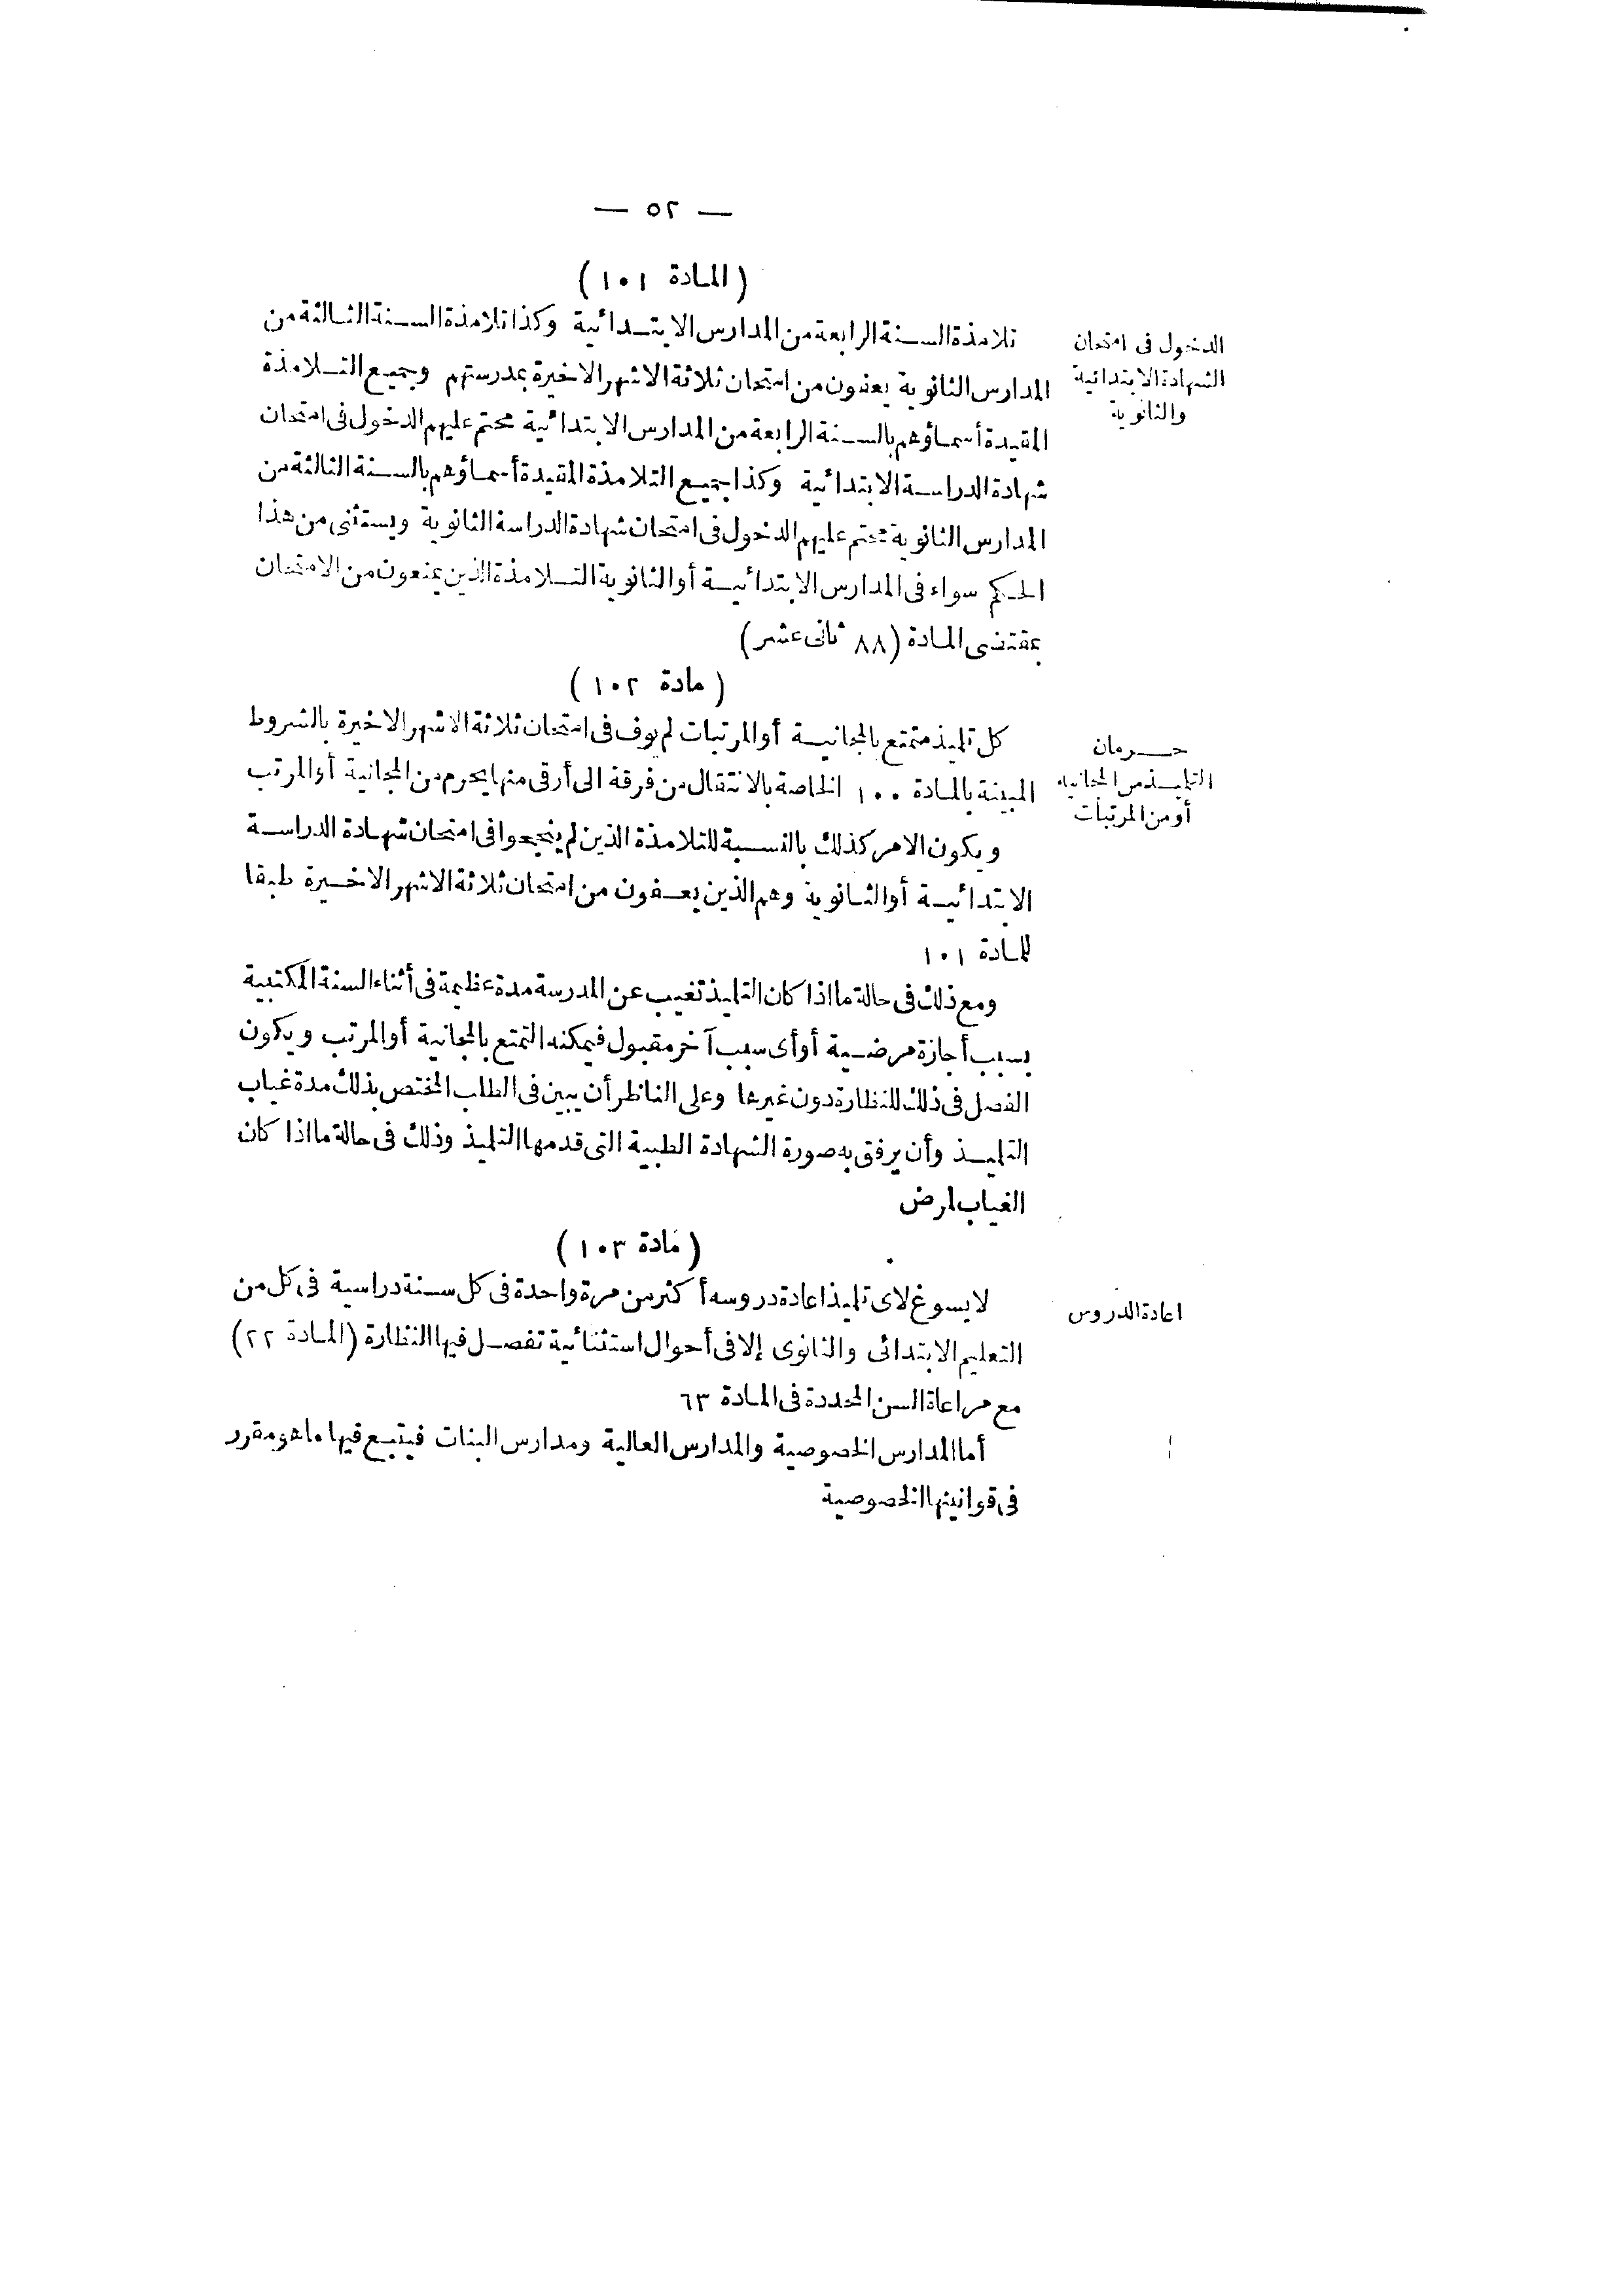 — ٥٢ —
(المادة ١٠١)
الدخول فى امتحان
الشهادة الابتدائية
والثانوية
تلامذة السنة الرابعة من المدارس الابتدائية وكذا تلامذة السنة الثالثة من
المدارس الثانوية يعفون من امتحان ثلاثة الاشهر الاخيرة بمدرستهم وجميع التلامذة
المقيدة أسماؤهم بالسنة الرابعة من المدارس الابتدائية محتم عليهم الدخول فى امتحان
شهادة الدراسة الابتدائية وكذا جميع التلامذة المقيدة أسماؤهم بالسنة الثالثة من
المدارس الثانوية محتم عليهم الدخول فى امتحان شهادة الدراسة الثانوية ويستثنى من هذا
الحكم سواء فى المدارس الابتدائية أو الثانوية التلامذة الذين يمنعون من الامتحان
بمقتضى المادة (٨٨ ثانى عشر)
(مادة ١٠٢)
حرمان
التلميذ من المجانية
أو من المرتبات
كل تلميذ متمتع بالمجانية أو المرتبات لم يوف فى امتحان ثلاثة الاشهر الاخيرة بالشروط
المبينة بالمادة ١٠٠ الخاصة بالانتقال من فرقة الى أرقى منها يحرم من المجانية أو المرتب
ويكون الامر كذلك بالنسبة للتلامذة الذين لم ينجحوا فى امتحان شهادة الدراسة
الابتدائية أو الثانوية وهم الذين يعفون من امتحان ثلاثة الاشهر الاخيرة طبقا
للمادة ١٠١
ومع ذلك فى حالة ما اذا كان التلميذ تغيب عن المدرسة مدة عظيمة فى أثناء السنة المكتبية
بسبب أجازة مرضية أو أى سبب آخر مقبول فيمكنه التمتع بالمجانية أو المرتب ويكون
الفصل فى ذلك للنظارة دون غيرها وعلى الناظر أن يبين فى الطلب المختص بذلك مدة غياب
التلميذ وأن يرفق به صورة الشهادة الطبية التى قدمها التلميذ وذلك فى حالة ما اذا كان
الغياب لمرض
(مادة ١٠٣)
اعادة الدروس
لا يسوغ لاى تلميذ اعادة دروسه أكثر من مرة واحدة فى كل سنة دراسية فى كل من
التعليم الابتدائى والثانوى إلا فى أحوال استثنائية تفصل فيها النظارة (المادة ٢٢)
مع مراعاة السن المحددة فى المادة ٦٣
أما المدارس الخصوصية والمدارس العالية ومدارس البنات فيتبع فيها ما هو مقرر
فى قوانينها الخصوصية